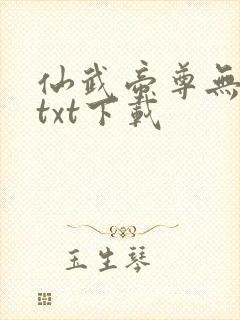 仙武帝尊無
txt下載
玉生琴